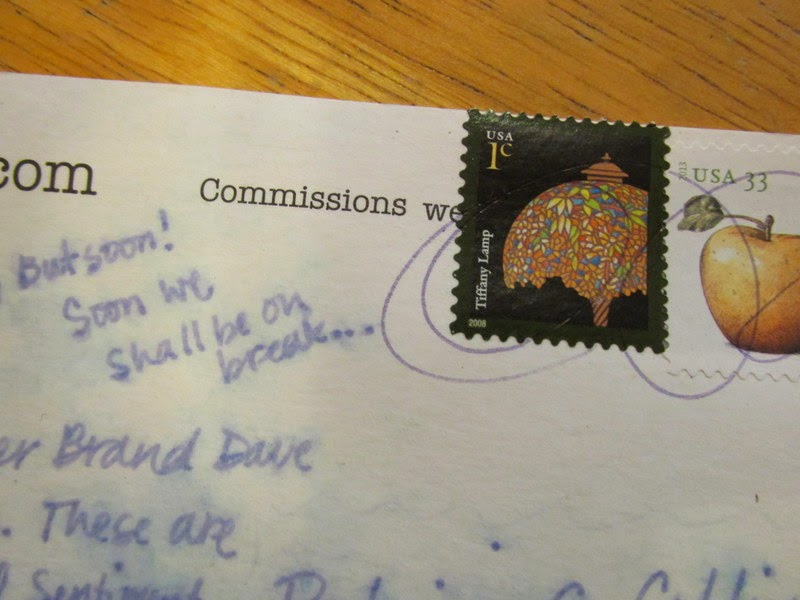 com
Commissions we
USA
1c
Tiffany Lamp
2008
2013
USA 33
But soon!
Soon we
shall be on
break...
er Brand Dave
. These are
Sentiment